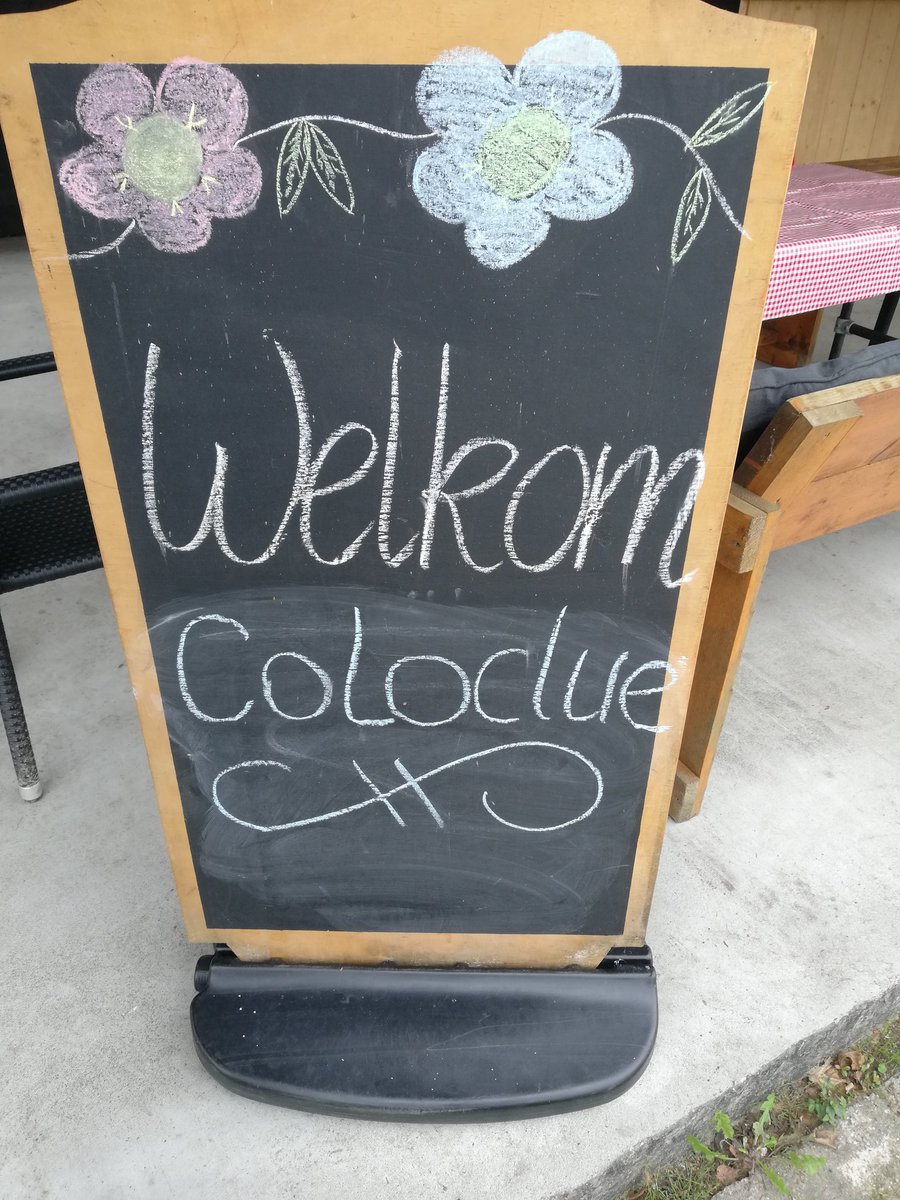 Welkom
Coloclue